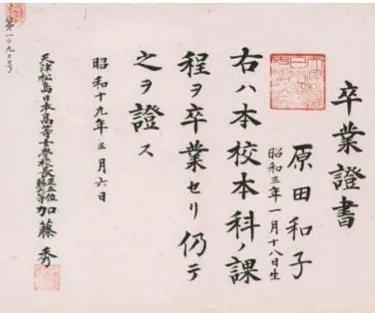 卒業證書
原田和子
昭和三年一月十八日生
右ハ本校本科ノ課
程ヲ卒業セリ仍テ
之ヲ證ス
昭和十九年三月六日
天津松島日本高等女學校長 加藤秀